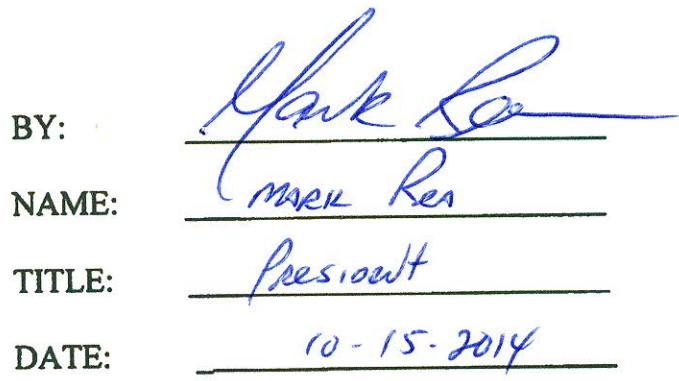 BY: Mark Rea
NAME: MARK REA
TITLE: President
DATE: 10-15-2014